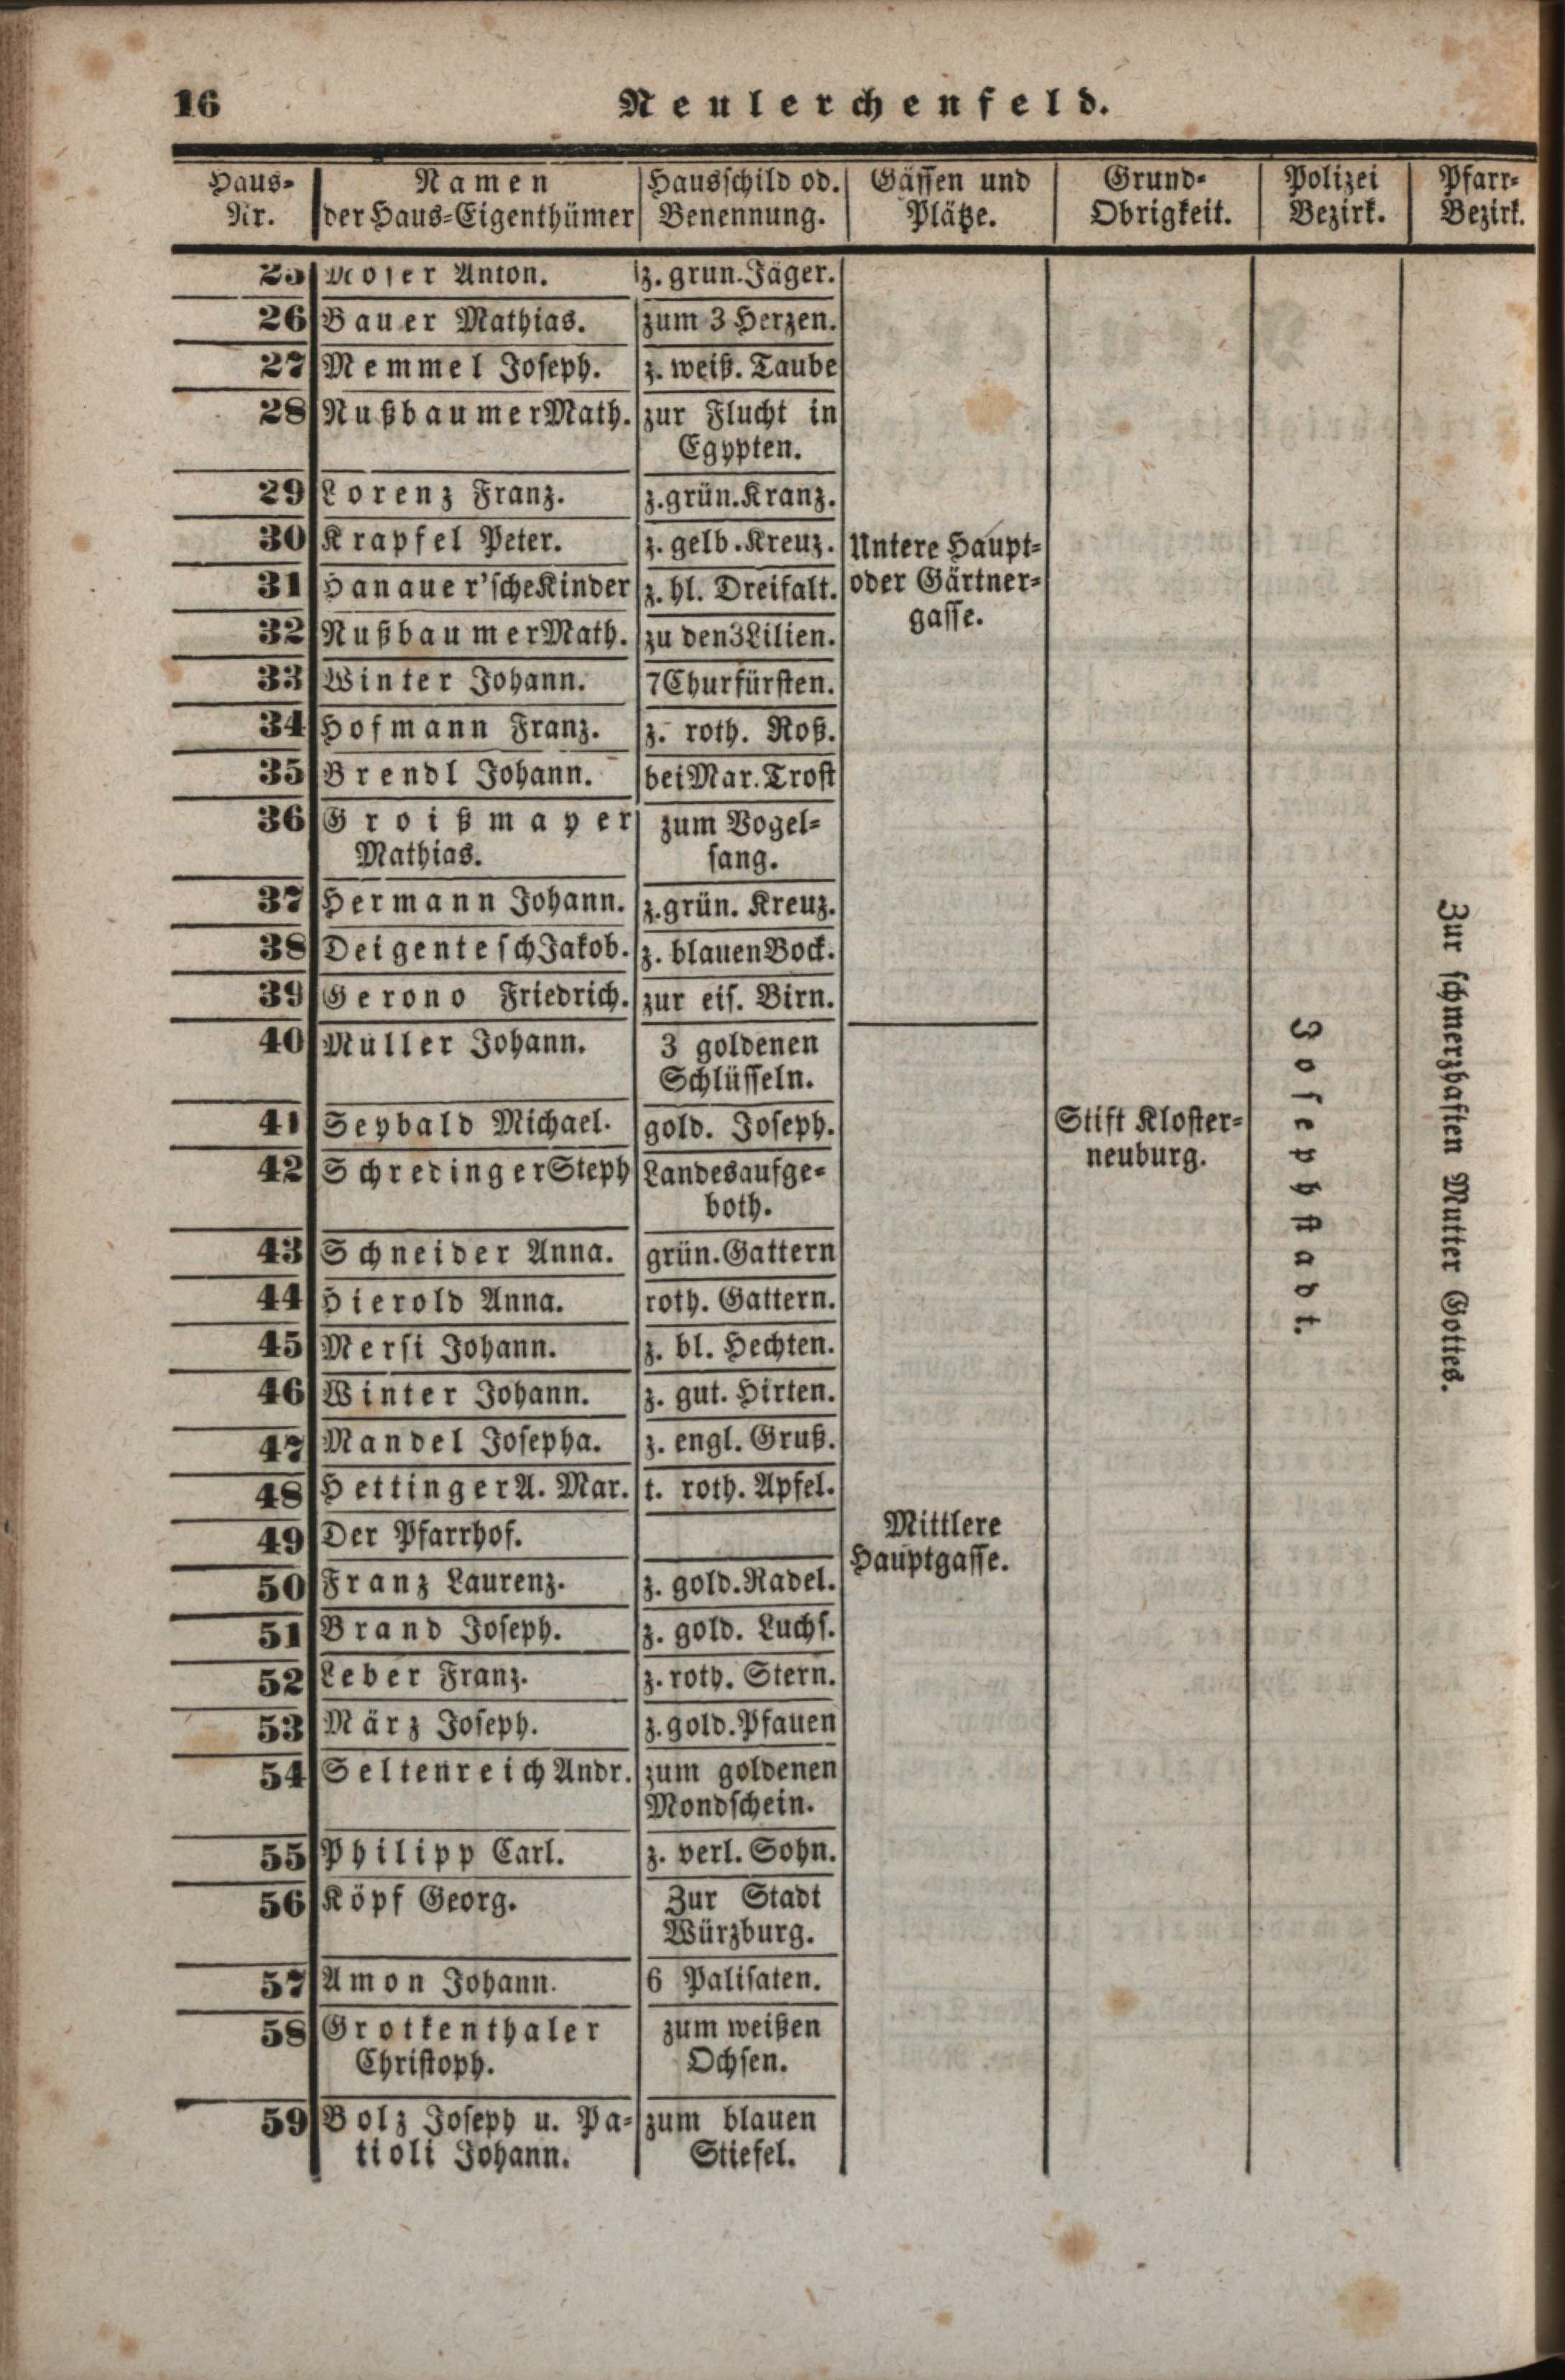 16 Neulerchenfeld.
Haus- Namen Hausschild od. Gässen und Grund- Polizei Pfarr-
Nr. der Haus-Eigenthümer Benennung. Plätze. Obrigkeit. Bezirk. Bezirk.
25 Moser Anton. z. grün. Jäger.
26 Bauer Mathias. zum 3 Herzen.
27 Memmel Joseph. z. weiß. Taube
28 Nußbaumer Math. zur Flucht in
Egypten.
29 Lorenz Franz. z. grün. Kranz.
30 Krapfel Peter. z. gelb. Kreuz. Untere Haupt-
31 Hanauer'sche Kinder z. hl. Dreifalt. oder Gärtner-
32 Nußbaumer Math. zu den 3 Lilien. gasse.
33 Winter Johann. 7 Churfürsten.
34 Hofmann Franz. z. roth. Roß.
35 Brendl Johann. bei Mar. Trost
36 Groißmayer zum Vogel-
Mathias. sang.
37 Hermann Johann. z. grün. Kreuz.
38 Deigentesch Jakob. z. blauen Bock.
39 Gerono Friedrich. zur eis. Birn.
40 Müller Johann. 3 goldenen
Schlüsseln.
41 Seybald Michael. gold. Joseph. Stift Kloster-
42 Schredinger Steph Landesaufge- neuburg.
both.
43 Schneider Anna. grün. Gattern
44 Hierold Anna. roth. Gattern.
45 Mersi Johann. z. bl. Hechten.
46 Winter Johann. z. gut. Hirten.
47 Mandel Josepha. z. engl. Gruß.
48 Hettinger A. Mar. t. roth. Apfel.
49 Der Pfarrhof. Mittlere
50 Franz Laurenz. z. gold. Radel. Hauptgasse.
51 Brand Joseph. z. gold. Luchs.
52 Leber Franz. z. roth. Stern.
53 März Joseph. z. gold. Pfauen
54 Seltenreich Andr. zum goldenen
Mondschein.
55 Philipp Carl. z. verl. Sohn.
56 Köpf Georg. Zur Stadt
Würzburg.
57 Amon Johann. 6 Palisaten.
58 Grotkenthaler zum weißen
Christoph. Ochsen.
59 Bolz Joseph u. Pa- zum blauen
tioli Johann. Stiefel.
Josephstadt.
Zur schmerzhaften Mutter Gottes.